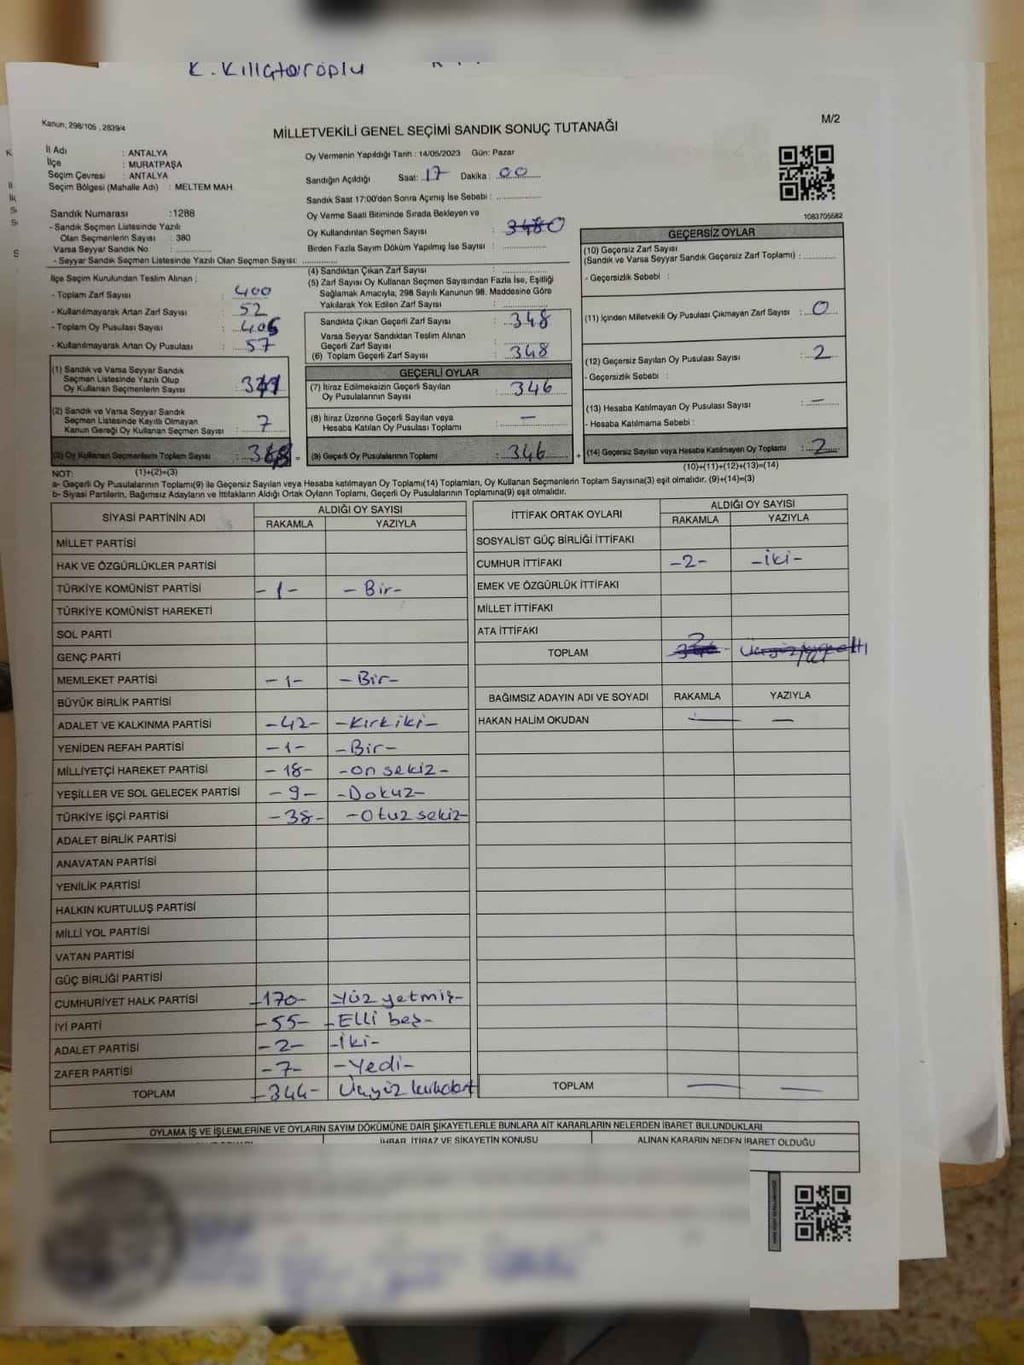 K. Kılıçtaroğlu
Kanun; 298/105 , 2839/4
MİLLETVEKİLİ GENEL SEÇİMİ SANDIK SONUÇ TUTANAĞI
M/2
İl Adı : ANTALYA
İlçe : MURATPAŞA
Seçim Çevresi : ANTALYA
Seçim Bölgesi (Mahalle Adı) : MELTEM MAH.
Sandık Numarası : 1288
- Sandık Seçmen Listesinde Yazılı
Olan Seçmenlerin Sayısı : 380
Varsa Seyyar Sandık No :
- Seyyar Sandık Seçmen Listesinde Yazılı Olan Seçmen Sayısı:
Oy Vermenin Yapıldığı Tarih : 14/05/2023 Gün: Pazar
Sandığın Açıldığı Saat: 17 Dakika : 00
Sandık Saat 17:00'den Sonra Açılmış İse Sebebi :
Oy Verme Saati Bitiminde Sırada Bekleyen ve
Oy Kullandırılan Seçmen Sayısı :
Birden Fazla Sayım Döküm Yapılmış İse Sayısı :
1083705582
İlçe Seçim Kurulundan Teslim Alınan ;
- Toplam Zarf Sayısı : 400
- Kullanılmayarak Artan Zarf Sayısı : 52
- Toplam Oy Pusulası Sayısı :
- Kullanılmayarak Artan Oy Pusulası : 57
(1) Sandık ve Varsa Seyyar Sandık
Seçmen Listesinde Yazılı Olup
Oy Kullanan Seçmenlerin Sayısı :
(2) Sandık ve Varsa Seyyar Sandık
Seçmen Listesinde Kayıtlı Olmayan
Kanun Gereği Oy Kullanan Seçmen Sayısı : 7
(3) Oy Kullanan Seçmenlerin Toplam Sayısı :
(4) Sandıktan Çıkan Zarf Sayısı :
(5) Zarf Sayısı Oy Kullanan Seçmen Sayısından Fazla İse, Eşitliği
Sağlamak Amacıyla, 298 Sayılı Kanunun 98. Maddesine Göre
Yakılarak Yok Edilen Zarf Sayısı :
Sandıkta Çıkan Geçerli Zarf Sayısı : 348
Varsa Seyyar Sandıktan Teslim Alınan
Geçerli Zarf Sayısı :
(6) Toplam Geçerli Zarf Sayısı : 348
GEÇERLİ OYLAR
(7) İtiraz Edilmeksizin Geçerli Sayılan
Oy Pusulalarının Sayısı : 346
(8) İtiraz Üzerine Geçerli Sayılan veya
Hesaba Katılan Oy Pusulası Toplamı : —
(9) Geçerli Oy Pusulalarının Toplamı : 346
GEÇERSİZ OYLAR
(10) Geçersiz Zarf Sayısı
(Sandık ve Varsa Seyyar Sandık Geçersiz Zarf Toplamı) :
- Geçersizlik Sebebi :
(11) İçinden Milletvekili Oy Pusulası Çıkmayan Zarf Sayısı : 0
(12) Geçersiz Sayılan Oy Pusulası Sayısı : 2
- Geçersizlik Sebebi :
(13) Hesaba Katılmayan Oy Pusulası Sayısı : —
- Hesaba Katılmama Sebebi :
(14) Geçersiz Sayılan veya Hesaba Katılmayan Oy Toplamı : 2
NOT: (1)+(2)=(3)
(10)+(11)+(12)+(13)=(14)
a- Geçerli Oy Pusulalarının Toplamı(9) ile Geçersiz Sayılan veya Hesaba katılmayan Oy Toplamı(14) Toplamları, Oy Kullanan Seçmenlerin Toplam Sayısına(3) eşit olmalıdır. (9)+(14)=(3)
b- Siyasi Partilerin, Bağımsız Adayların ve İttifakların Aldığı Ortak Oyların Toplamı, Geçerli Oy Pusulalarının Toplamına(9) eşit olmalıdır.
SİYASİ PARTİNİN ADI ALDIĞI OY SAYISI
RAKAMLA YAZIYLA
MİLLET PARTİSİ
HAK VE ÖZGÜRLÜKLER PARTİSİ
TÜRKİYE KOMÜNİST PARTİSİ -1- -Bir-
TÜRKİYE KOMÜNİST HAREKETİ
SOL PARTİ
GENÇ PARTİ
MEMLEKET PARTİSİ -1- -Bir-
BÜYÜK BİRLİK PARTİSİ
ADALET VE KALKINMA PARTİSİ -42- -Kırkiki-
YENİDEN REFAH PARTİSİ -1- -Bir-
MİLLİYETÇİ HAREKET PARTİSİ -18- -on sekiz-
YEŞİLLER VE SOL GELECEK PARTİSİ -9- -Dokuz-
TÜRKİYE İŞÇİ PARTİSİ -38- -Otuz sekiz-
ADALET BİRLİK PARTİSİ
ANAVATAN PARTİSİ
YENİLİK PARTİSİ
HALKIN KURTULUŞ PARTİSİ
MİLLİ YOL PARTİSİ
VATAN PARTİSİ
GÜÇ BİRLİĞİ PARTİSİ
CUMHURİYET HALK PARTİSİ -170- Yüz yetmiş-
İYİ PARTİ -55- -Elli beş-
ADALET PARTİSİ -2- -İki-
ZAFER PARTİSİ -7- -Yedi-
TOPLAM -344- Üçyüz kırkdört
İTTİFAK ORTAK OYLARI ALDIĞI OY SAYISI
RAKAMLA YAZIYLA
SOSYALİST GÜÇ BİRLİĞİ İTTİFAKI
CUMHUR İTTİFAKI -2- -İki-
EMEK VE ÖZGÜRLÜK İTTİFAKI
MİLLET İTTİFAKI
ATA İTTİFAKI
TOPLAM 2
BAĞIMSIZ ADAYIN ADI VE SOYADI RAKAMLA YAZIYLA
HAKAN HALİM OKUDAN — —
TOPLAM — —
OYLAMA İŞ VE İŞLEMLERİNE VE OYLARIN SAYIM DÖKÜMÜNE DAİR ŞİKAYETLERLE BUNLARA AİT KARARLARIN NELERDEN İBARET BULUNDUKLARI
İHBAR, İTİRAZ VE ŞİKAYETİN KONUSU ALINAN KARARIN NEDEN İBARET OLDUĞU